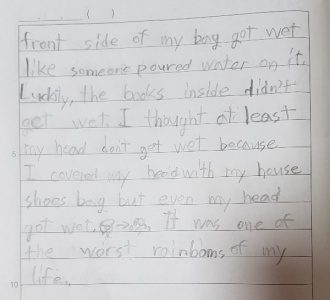 front side of my bag got wet
like someone poured water on it.
Luckily, the books inside didn't
get wet. I thought at least
my head don't get wet because
I covered my head with my house
shoes bag but even my head
got wet. It was one of
the worst rainboms of my
life.